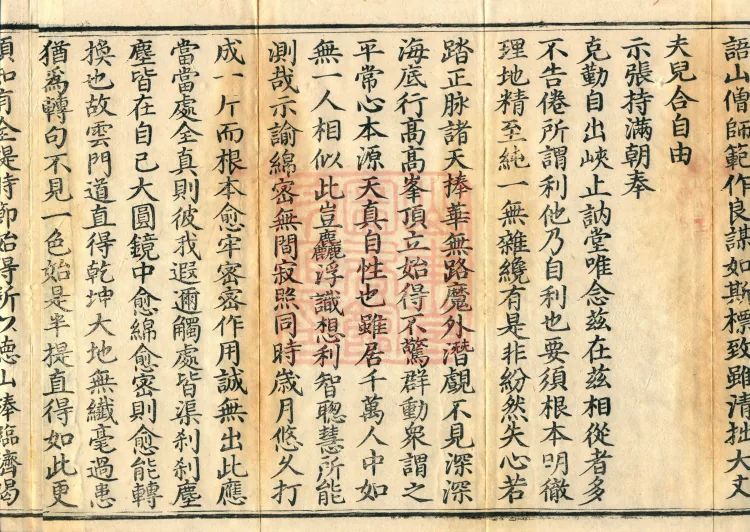 語山僧師範作良謀如斯標致雖清拙大丈
夫兒合自由
示張持滿朝奉
克勤自出峽止訥堂唯念茲在茲相從者多
不告倦所謂利他乃自利也要須根本明徹
理地精至純一無雜纔有是非紛然失心若
踏正脉諸天捧華無路魔外潛覰不見深深
海底行髙髙峯頂立始得不驚群動衆謂之
平常心本源天真自性也雖居千萬人中如
無一人相似此豈麤浮識想利智聦慧所能
測哉示諭綿密無間寂照同時歳月悠久打
成一片而根本愈牢密密作用誠無出此應
當當處全真則彼我遐邇觸處皆渠刹刹塵
塵皆在自己大圓鏡中愈綿愈密則愈能轉
換也故雲門道直得乾坤大地無纖毫過患
猶爲轉句不見一色始是半提直得如此更
須知有全提時節始得所以德山捧臨濟喝